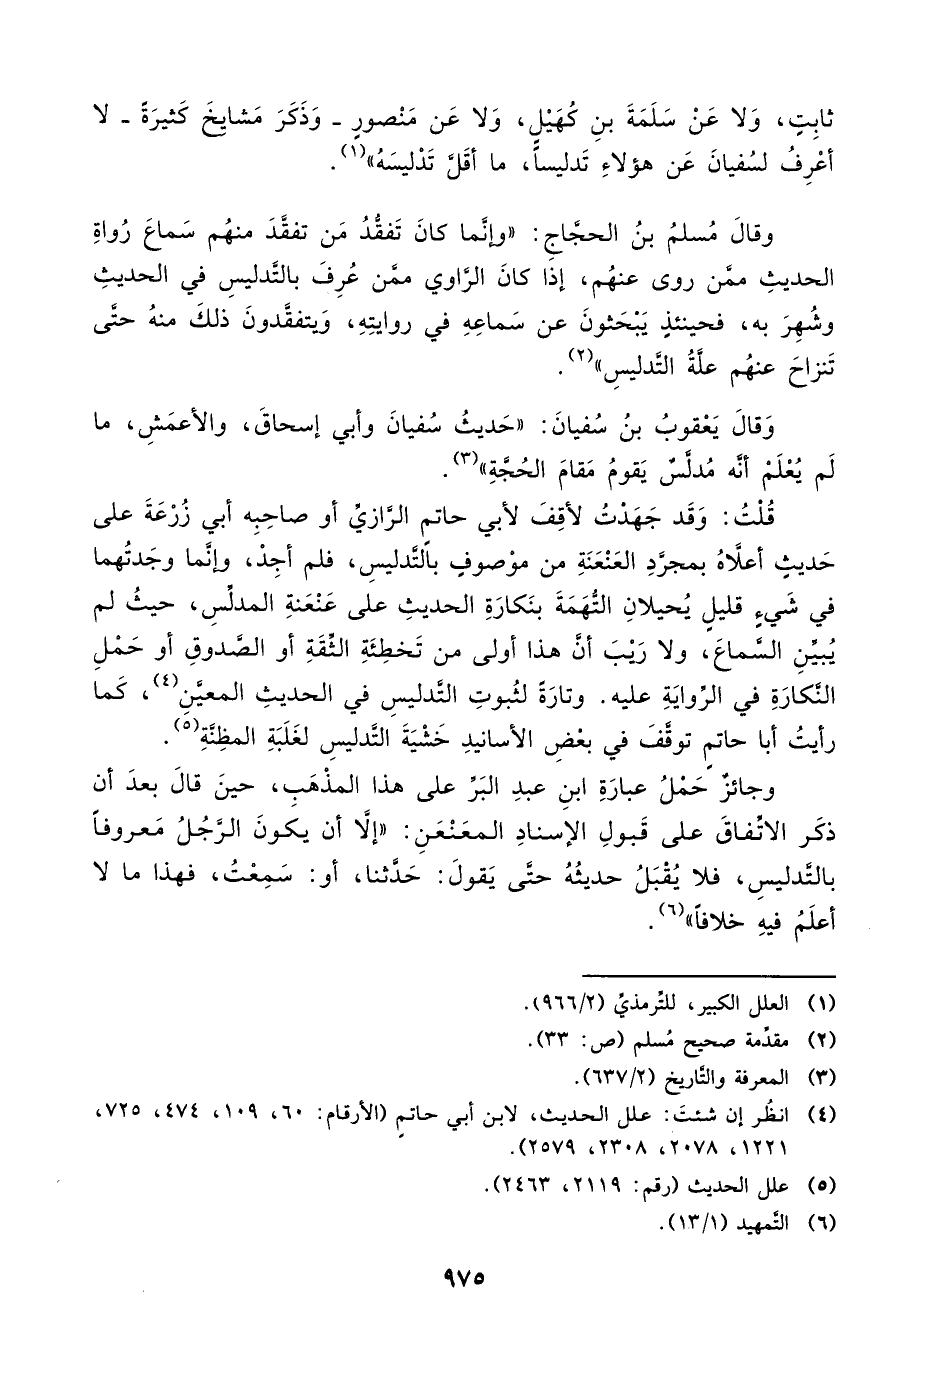 ثابِتٍ، وَلا عَنْ سَلَمَةَ بنِ كُهَيْلٍ، وَلا عَن مَنْصورٍ ـ وَذَكَرَ مَشايخَ كَثيرَةً ـ لا
أعْرِفُ لسُفيانَ عَن هؤلاءِ تَدليساً، ما أقَلَّ تَدْليسَهُ»(١).
وقالَ مُسلمُ بنُ الحجَّاجِ: «وإنَّما كانَ تَفقُّدُ مَن تفقَّدَ منهُم سَماعَ رُواةِ
الحديثِ ممَّن روى عنهُم، إذَا كانَ الرَّاوي ممَّن عُرِفَ بالتَّدليسِ في الحديثِ
وشُهِرَ به، فحينئذٍ يَبْحَثونَ عن سَماعِهِ في روايتِهِ، وَيتفقَّدونَ ذلكَ منهُ حتَّى
تَنزاحَ عنهُم علَّةُ التَّدليسِ»(٢).
وَقالَ يَعْقوبُ بنُ سُفيانَ: «حَديثُ سُفيانَ وأبي إسحاقَ، والأعمَشِ، ما
لَم يُعْلَمْ أنَّه مُدلَّسٌ يَقومُ مَقامَ الحُجَّةِ»(٣).
قُلْتُ: وَقَد جَهَدْتُ لأقِفَ لأبي حاتمٍ الرَّازيِّ أو صاحِبِه أبي زُرْعَةَ على
حَديثٍ أعلَّاهُ بمجرَّدِ العَنْعَنَةِ من موْصوفٍ بالتَّدليسِ، فلم أجِدْ، وإنَّما وجَدتُهما
في شَيءٍ قليلٍ يُحيلانِ التُّهمَةَ بنَكارَةِ الحديثِ على عَنْعَنةِ المدلِّسِ، حيثُ لم
يُبيِّنِ السَّماعَ، ولا رَيْبَ أنَّ هذا أولى من تَخطِئَةِ الثِّقَةِ أو الصَّدوقِ أو حَمْلِ
النَّكارَةِ في الرِّوايَةِ عليه. وتارَةً لثُبوتِ التَّدليسِ في الحديثِ المعيَّنِ(٤)، كَما
رأيتُ أبا حاتمٍ توقَّفَ في بعْضِ الأسانيدِ خَشْيَةَ التَّدليسِ لغَلَبَةِ المظِنَّةِ(٥).
وجائزٌ حَمْلُ عبارَةِ ابنِ عبدِ البَرِّ على هذا المذْهَبِ، حينَ قالَ بعدَ أن
ذكَر الاتِّفاقَ على قَبولِ الإسنادِ المعَنْعَنِ: «إلَّا أن يكونَ الرَّجُلُ مَعروفاً
بالتَّدليسِ، فلا يُقْبَلُ حديثُهُ حتَّى يَقولَ: حَدَّثنا، أو: سَمِعْتُ، فهذا ما لا
أعلَمُ فيهِ خلافاً»(٦).
(١) العلل الكبير، للتِّرمذيِّ (٩٦٦/٢).
(٢) مقدِّمة صحيح مُسلم (ص: ٣٣).
(٣) المعرفة والتَّاريخ (٦٣٧/٢).
(٤) انظُر إن شئتَ: علل الحديث، لابن أبي حاتمٍ (الأرقام: ٦٠، ١٠٩، ٤٧٤، ٧٢٥،
١٢٢١، ٢٠٧٨، ٢٣٠٨، ٢٥٧٩).
(٥) علل الحديث (رقم: ٢١١٩، ٢٤٦٣).
(٦) التَّمهيد (١٣/١).
٩٧٥